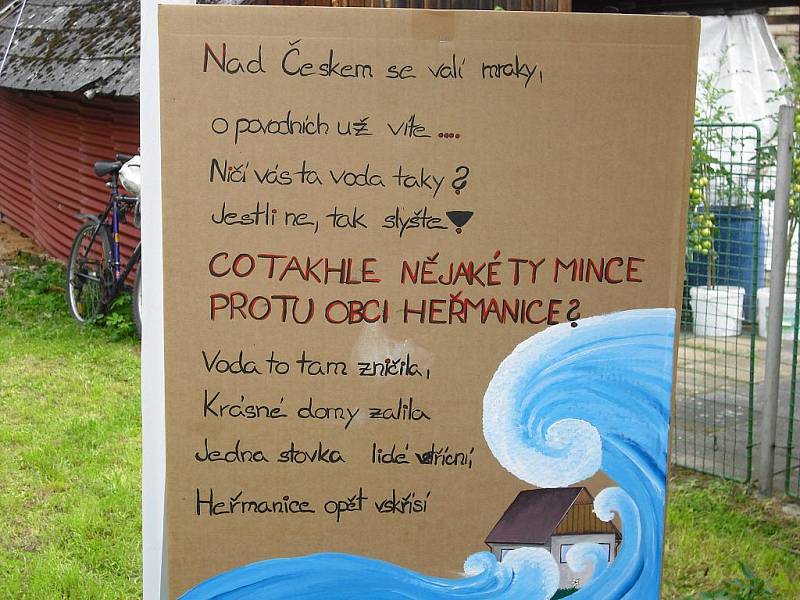 Nad Českem se valí mraky,
o povodních už víte ....
Ničí vás ta voda taky?
Jestli ne, tak slyšte!
CO TAKHLE NĚJAKÉ TY MINCE
PRO TU OBCI HEŘMANICE?
Voda to tam zničila,
Krásné domy zalila
Jedna stovka lidé vstřícní,
Heřmanice opět vzkřísí